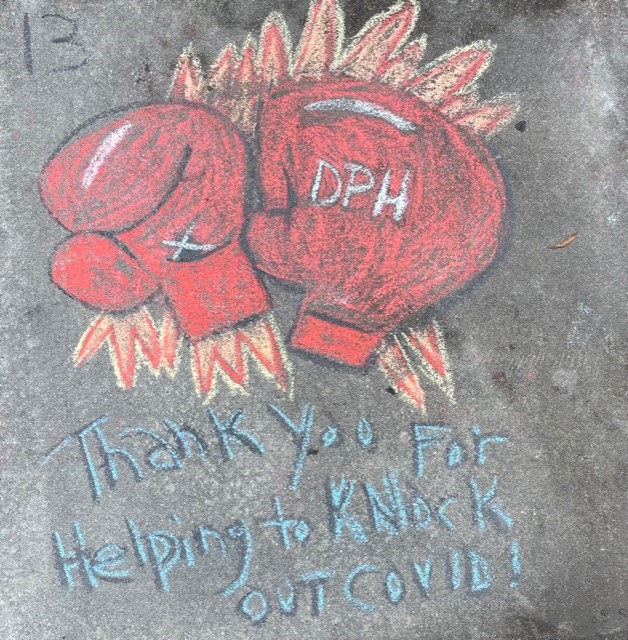 13
DPH
X
Thank You For
Helping to KNock
OUT COVID!